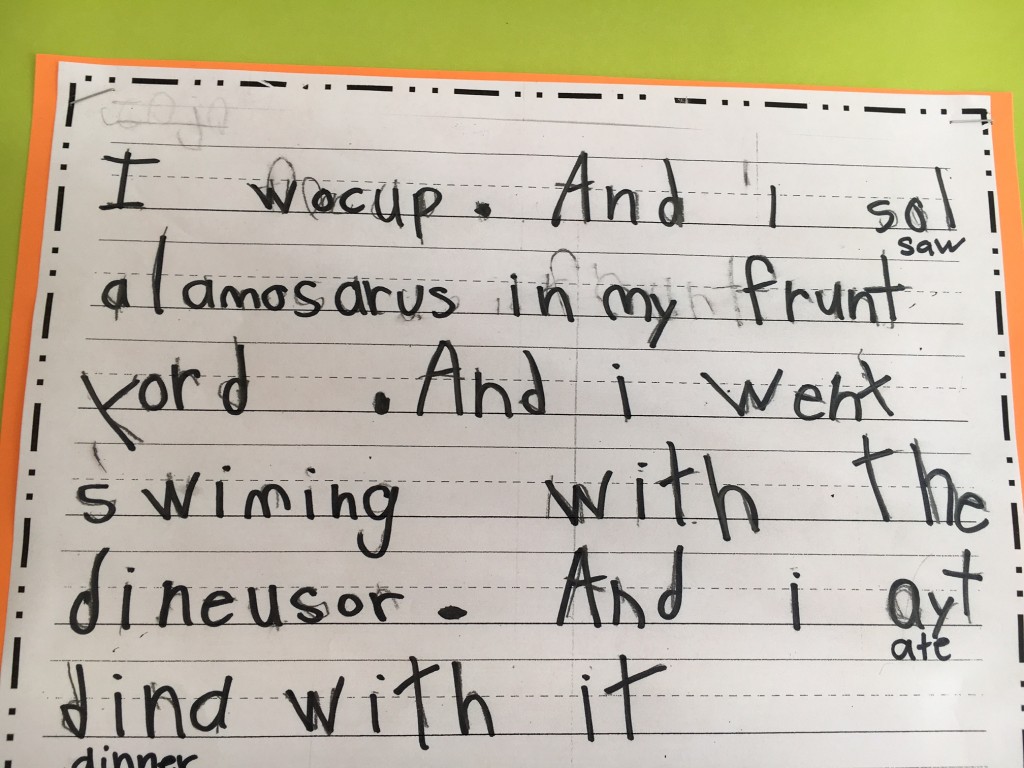 I wocup. And i sol
saw
alamosarus in my frunt
yord . And i went
swiming with the
dineusor. And i ayt
ate
dind with it
dinner